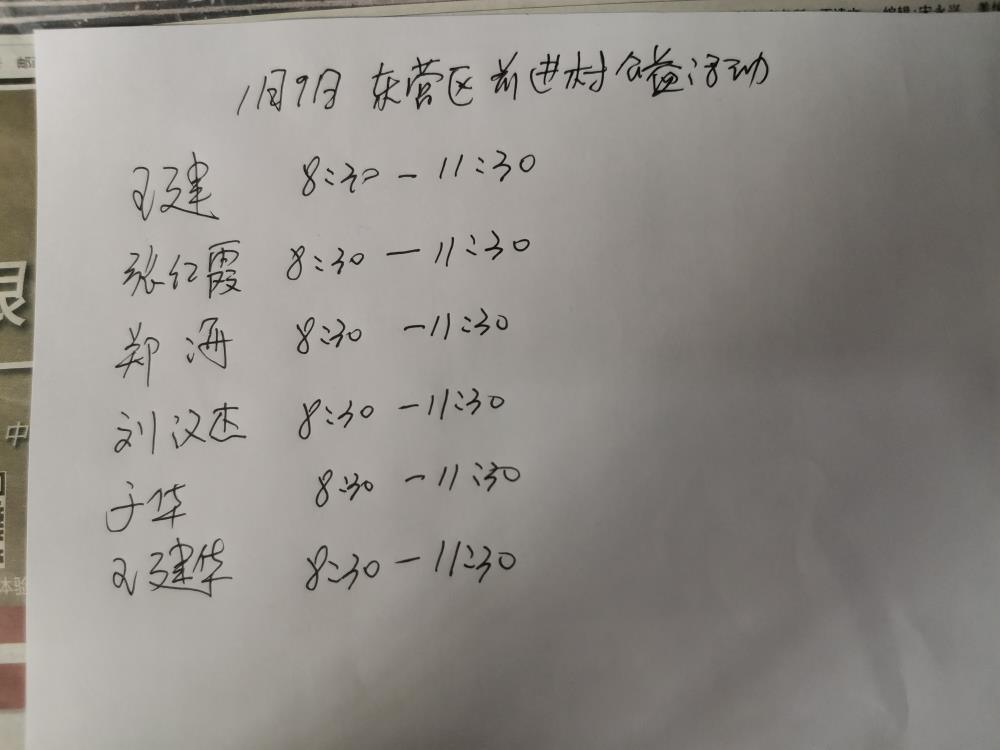 1月9日 东营区前进村公益活动
王建 8:30-11:30
张红霞 8:30-11:30
郑海 8:30-11:30
刘汉杰 8:30-11:30
于华 8:30-11:30
王建华 8:30-11:30
中
体验